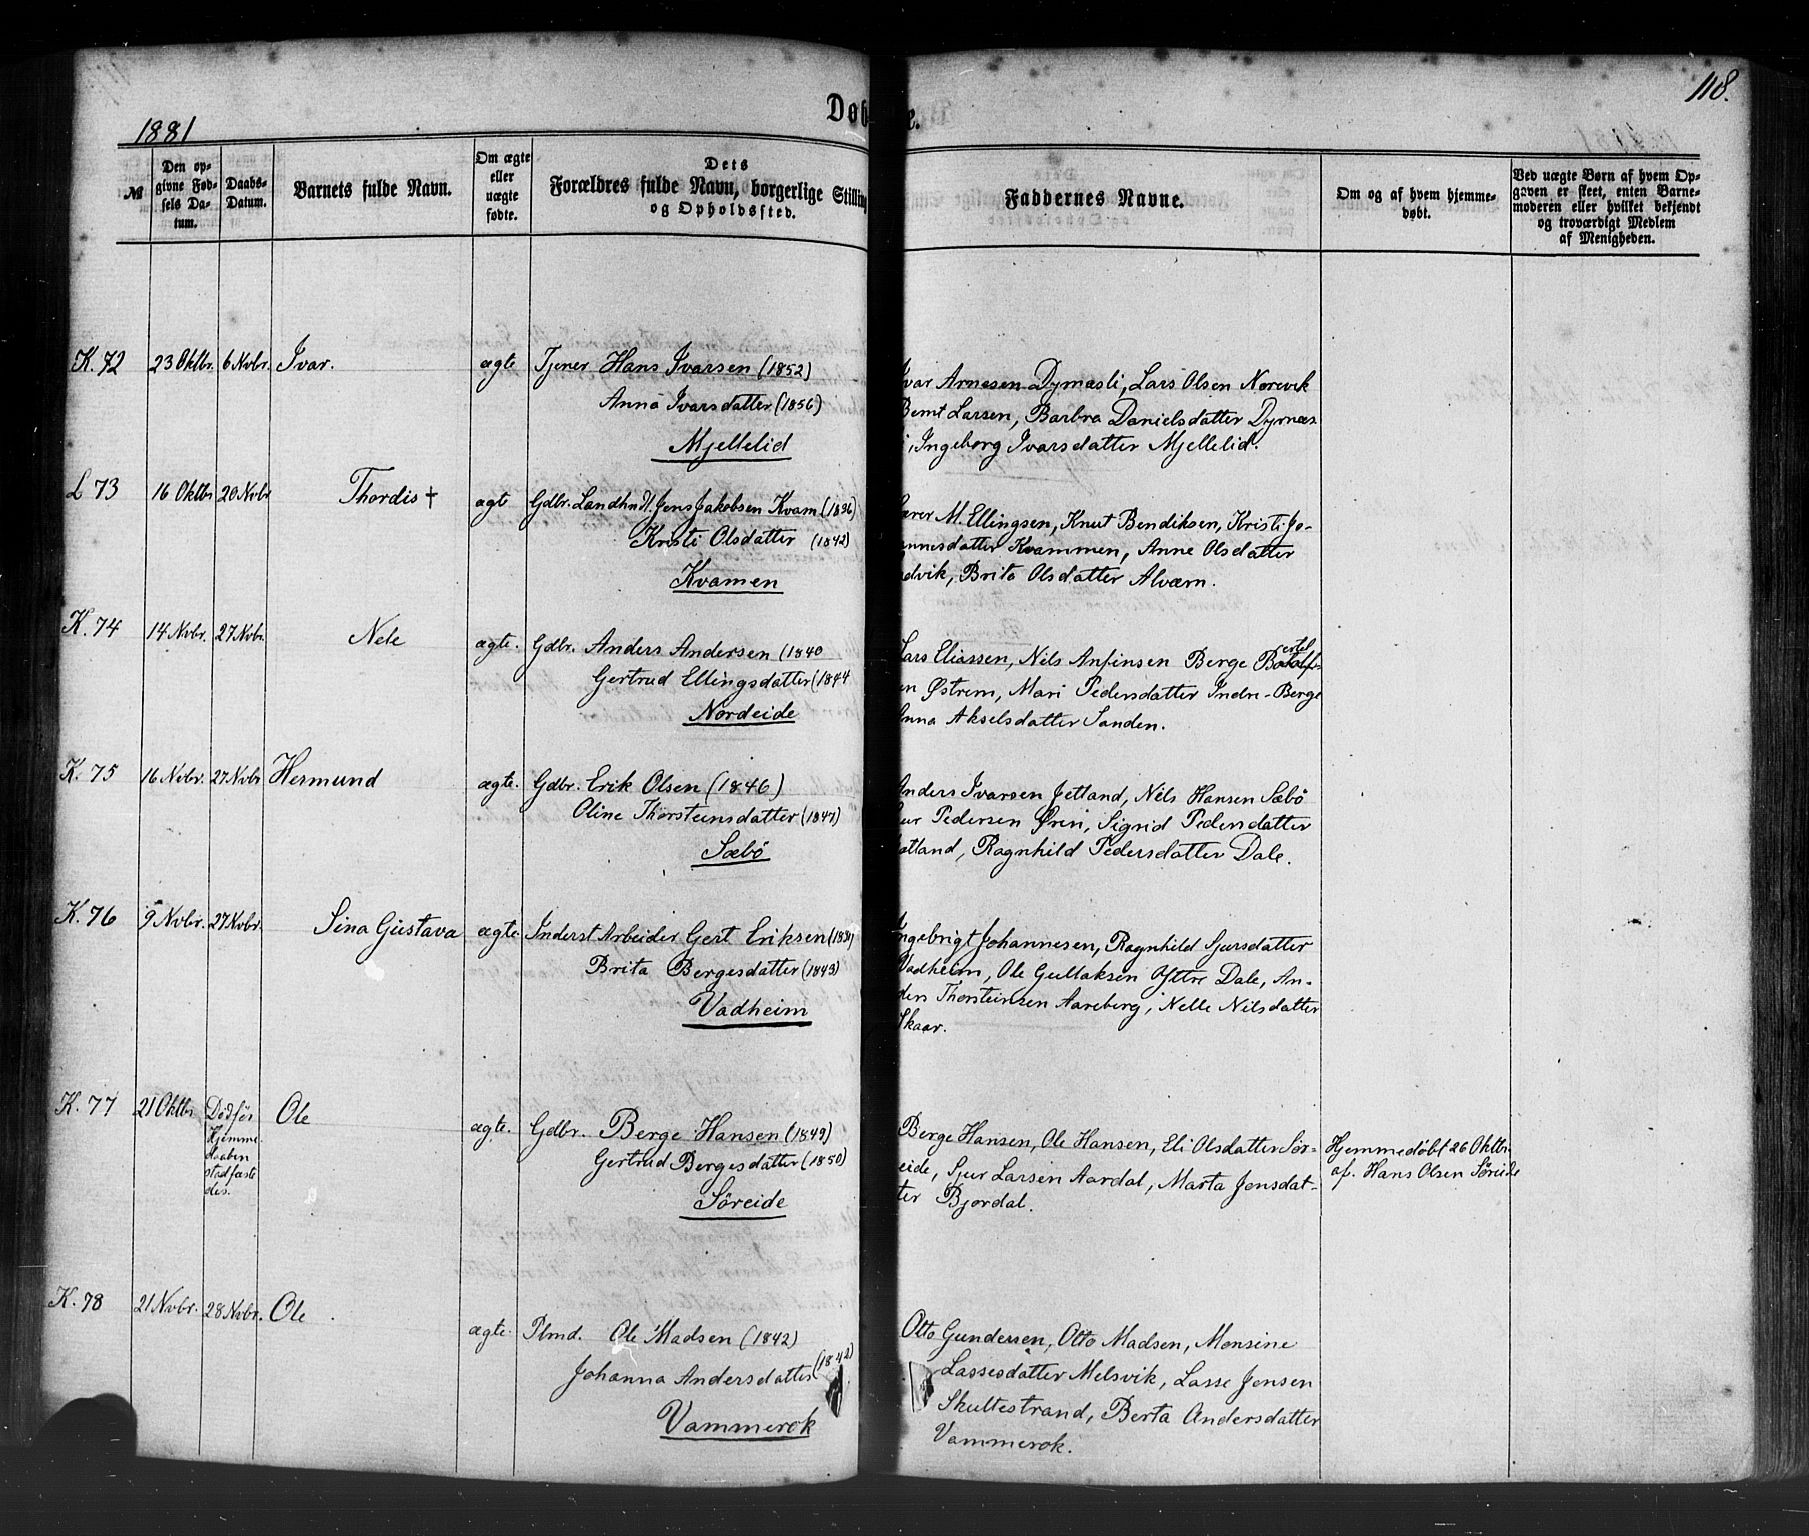 118.
1881
Døb e.
№
Den opgivne Fødsels Datum.
Daabs-Datum.
Barnets fulde Navn.
Om ægte eller uægte fødte.
Dets Forældres fulde Navn, borgerlige Stilling og Opholdssted.
Faddernes Navne.
Om og af hvem hjemmedøbt.
Ved uægte Børn af hvem Opgaven er skeet, enten Barnemoderen eller hvilket bekjendt og troværdigt Medlem af Menigheden.
K. 72 23 Oktbr. 6 Nvbr. Ivar. ægte Tjener Hans Ivarsen (1852)
Anna Ivarsdatter (1856)
Mjellelid
Ivar Arnesen Dymæsli, Lars Olsen Norevik
Bernt Larsen, Barbra Danielsdatter Dyrnæs
i, Ingeborg Ivarsdatter Mjellelid.
L 73 16 Oktbr 20 Nvbr Thordis † ægte Gdbr. Landhndl. Jens Jakobsen Kvam (1836)
Kristi Olsdatter (1842)
Kvamen
ærer M. Ellingsen, Knut Bendiksen, Kristi Jo-
annesdatter Kvammen, Anne Olsdatter
dvik, Brita Olsdatter Alværn.
K. 74 14 Nvbr. 27 Nvbr. Nele ægte. Gdbr. Anders Andersen (1840
Gertrud Ellingsdatter (1844
Nordeide
Lars Eliassen, Nils Anfinsen Berge
en Østrem, Mari Pedersdatter Indre-Berge
Anna Akselsdatter Sanden.
K. 75 16 Nvbr. 27 Nvbr Hermund ægte. Gdbr. Erik Olsen (1846)
Oline Thorsteinsdatter (1847)
Sæbö
Anders Ivarsen Jetland, Nils Hansen Sæbö
ur Pedersen Ørin, Sigrid Pedersdatter
etland, Ragnhild Pedersdatter Dale.
K. 76 9 Nvbr. 27 Nvbr. Sina Gustava ægte. Inderst Arbeider Gert Eriksen
Brita Bergesdatter (1843)
Vadheim
Ingebrigt Johannesen, Ragnhild Sjursdatter
Vadheim, Ole Gullaksen Yttre Dale, An-
ders Thorsteinsen Aareberg, Nelle Nilsdatter
Skaar.
K. 77 21 Oktbr Ole ægte. Gdbr. Berge Hansen (1849)
Hjemme
daaben
stadfæste
des.
Gertrud Bergesdatter (1850)
Söreide
Berge Hansen, Ole Hansen, Eli Olsdatter Sör-
eide, Sjur Larsen Aardal, Marta Jensdat-
ter Bjordal.
Hjemmedöbt 26 Oktbr.
af. Hans Olsen Söreide
K. 78 21 Nvbr. 28 Nvbr. Ole ægte. Plmd. Ole Madsen (1842)
Johanna Andersdatter (1842)
Vammerok
Otto Gundersen, Otto Madsen, Monsine
Lassesdatter Melsvik, Lasse Jensen
Skultestrand, Berta Andersdatter
Vammerok.